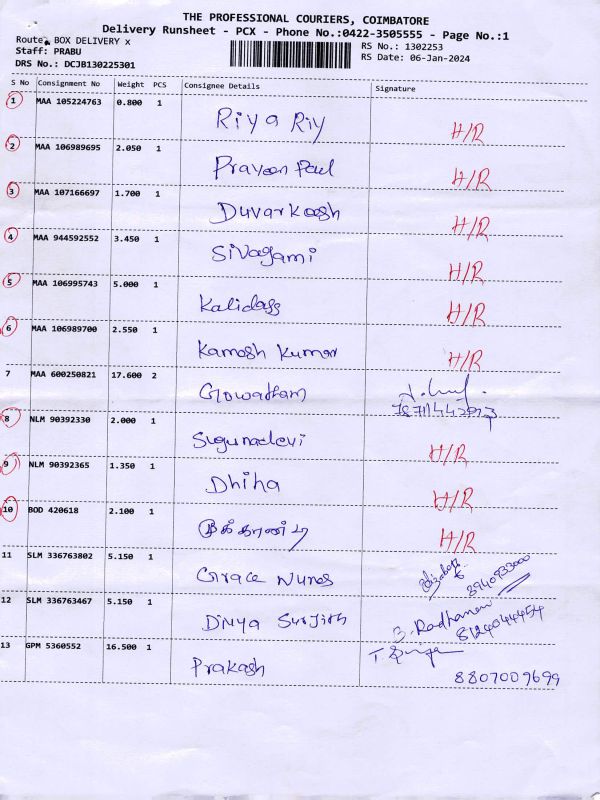 THE PROFESSIONAL COURIERS, COIMBATORE
Delivery Runsheet - PCX - Phone No.:0422-3505555 - Page No.:1
Route: BOX DELIVERY x
RS No.: 1302253
Staff: PRABU
RS Date: 06-Jan-2024
DRS No.: DCJB130225301
S No Consignment No Weight PCS Consignee Details Signature
1 MAA 105224763 0.800 1 Riya Riy H/R
2 MAA 106989695 2.050 1 Praveen Paul H/R
3 MAA 107166697 1.700 1 Duvarkesh H/R
4 MAA 944592552 3.450 1 Sivagami H/R
5 MAA 106995743 5.000 1 Kalidass H/R
6 MAA 106989700 2.550 1 Kamesh Kumar H/R
7 MAA 600250821 17.600 2 Gowatham
8 NLM 90392330 2.000 1 Sugunadevi H/R
9 NLM 90392365 1.350 1 Dhiha H/R
10 BOD 420618 2.100 1 H/R
11 SLM 336763802 5.150 1 Grace Nunes 8940933000
12 SLM 336763467 5.150 1 Divya Surjith 8124044454
13 GPM 5360552 16.500 1 Prakash 8807009699